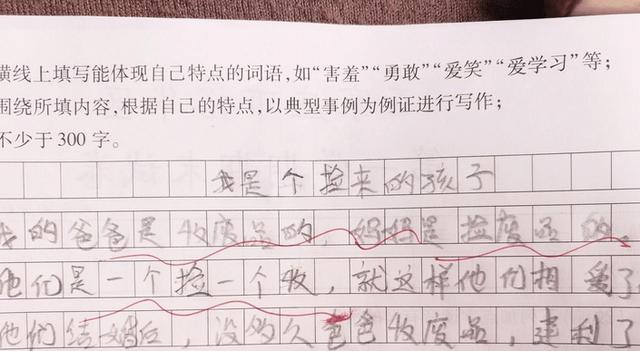 横线上填写能体现自己特点的词语，如“害羞”“勇敢”“爱笑”“爱学习”等；
围绕所填内容，根据自己的特点，以典型事例为例证进行写作；
不少于300字。
我是个捡来的孩子
我的爸爸是收废品的，妈妈是捡废品的。
他们是一个捡一个收，就这样他们相爱了
他们结婚后，没多久爸爸收废品，建利了